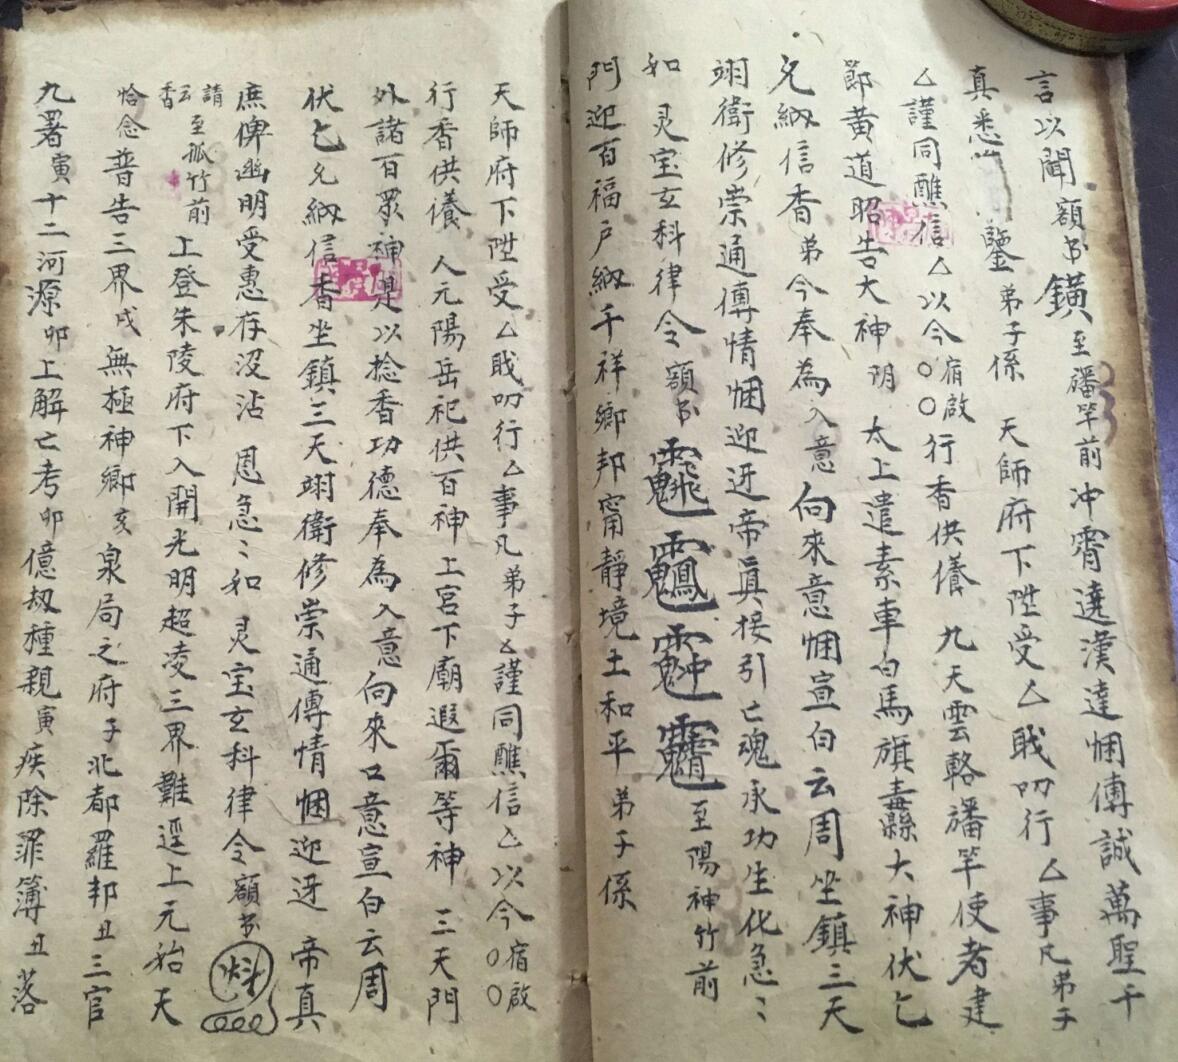 言以聞額書鐄至旛竿前冲霄達漢達悃傳誠萬聖千
真悉 鑒弟子係 天師府下陞受厶職叨行厶事凡弟子
厶謹同醮信厶以今〇〇宿啟行香供養 九天雲輅旛竿使者建
節黄道昭告大神 太上遣素車白馬旗纛縣大神伏乞
允納信香弟今奉為入意向來意悃宣白云周坐鎮三天
翊衛修崇通傳情悃迎迓帝眞接引亡魂承功生化急〻
如 灵宝玄科律令額書 至陽神竹前
門迎百福戶納千祥鄉邦甯靜境土和平 弟子係
天師府下陞受厶職叨行厶事凡弟子厶謹同醮信厶以今〇〇宿啟
行香供養 人元陽岳祀供百神上宫下廟遐爾等神 三天門
外諸百眾神是以捻香功德奉為入意向來口意宣白云周
伏乞允納信香坐鎮三天翊衛修崇通傳情悃迎迓 帝真
庶俾幽明受惠存沒沾 恩急〻如 灵宝玄科律令額書
請云香至孤竹前 上登朱陵府下入開光明超凌三界難逕上元始天
恰念 普告三界戌 無極神鄉亥 泉局之府子北都羅邦丑三官
九署寅十二河源卯上解亡考卯億刼種親寅疾除罪簿丑落